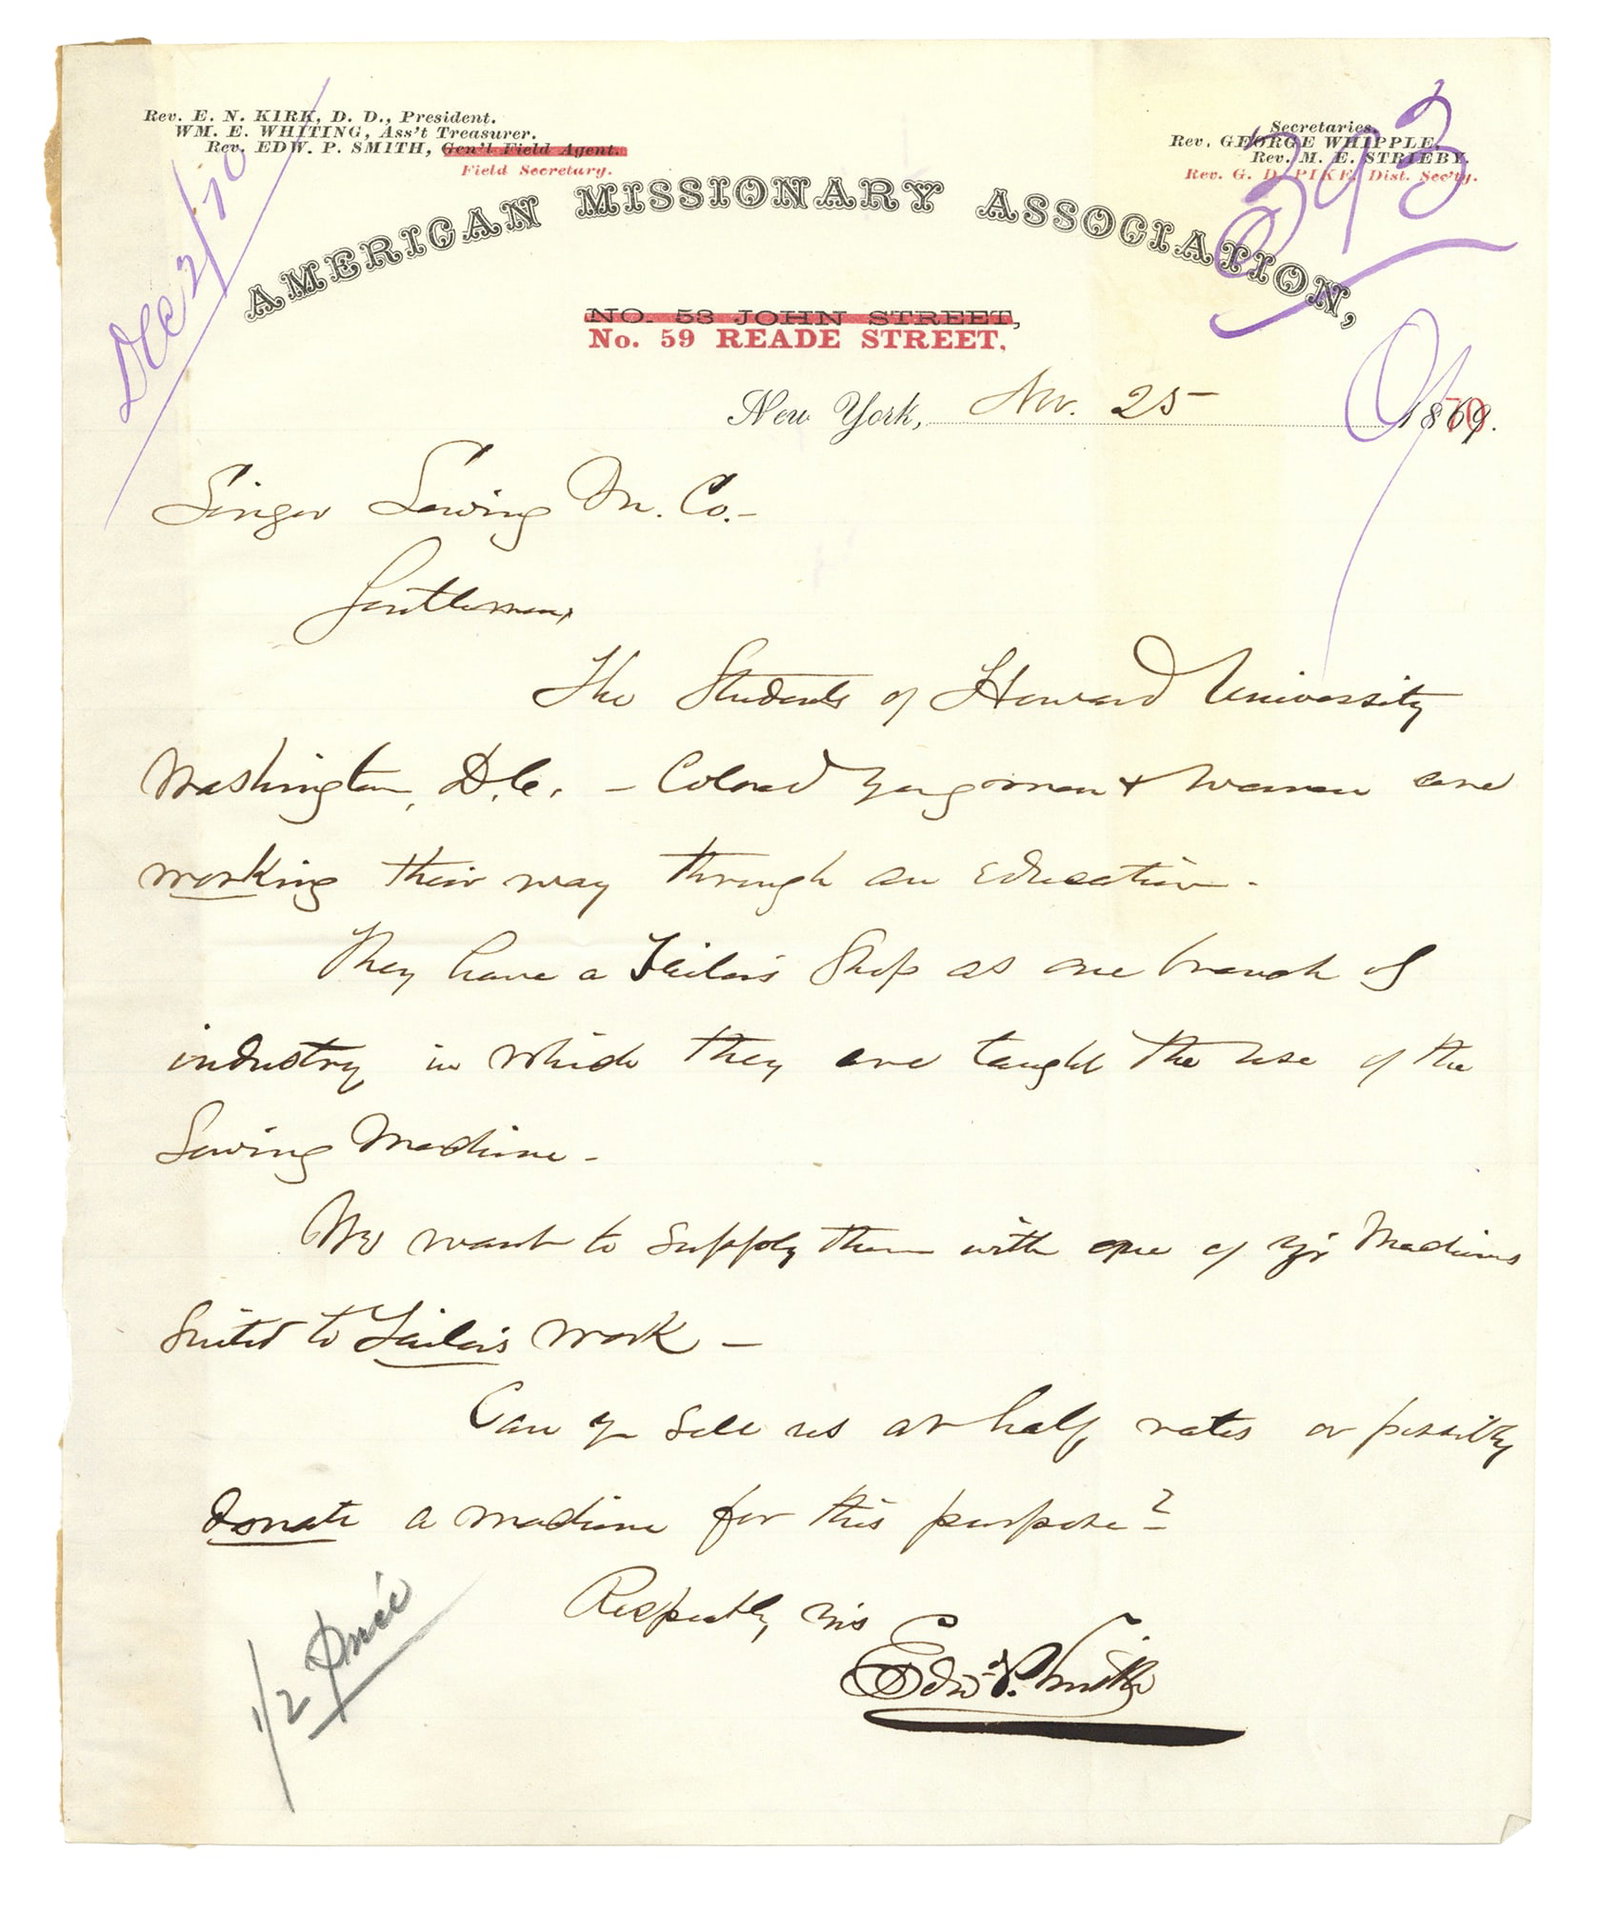 Rev. E. N. KIRK, D. D., President.
WM. E. WHITING, Ass't Treasurer.
Rev. EDW. P. SMITH, Gen'l Field Agent.
Field Secretary.
Secretaries,
Rev. GEORGE WHIPPLE.
Rev. M. E. STRIEBY.
Rev. G. D. PIKE, Dist. Sec'ty.
Dec 2/70
293
AMERICAN MISSIONARY ASSOCIATION,
NO. 53 JOHN STREET,
No. 59 READE STREET.
New York, Nov. 25 1870.
Singer Sewing M. Co.-
Gentlemen,
The Students of Howard University
Washington, D.C. - Colored yung men & women are
working their way through an education.
They have a Tailor's Shop as one branch of
industry in which they are taught the use of the
Sewing Machine -
We want to supply them with one of yr Machines
Suited to Tailor's work -
Can yu sell us at half rates or possibly
donate a machine for this purpose?
Respectly yrs
Edw. P. Smith
1/2 Price